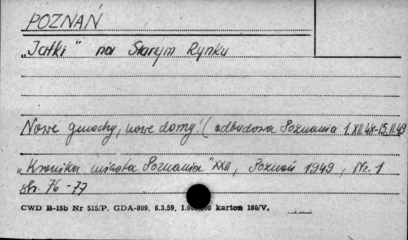 POZNAŃ
„Jatki" na Starym Rynku
Nowe gmachy, nowe domy! (odbudowa Poznania 1.XII.48-15.II.49
„Kronika miasta Poznania" XXII, Poznań 1949, Nr. 1
str. 76-77
CWD B-15b Nr 515/P. GDA-809. 6.3.59, karton 180/V.